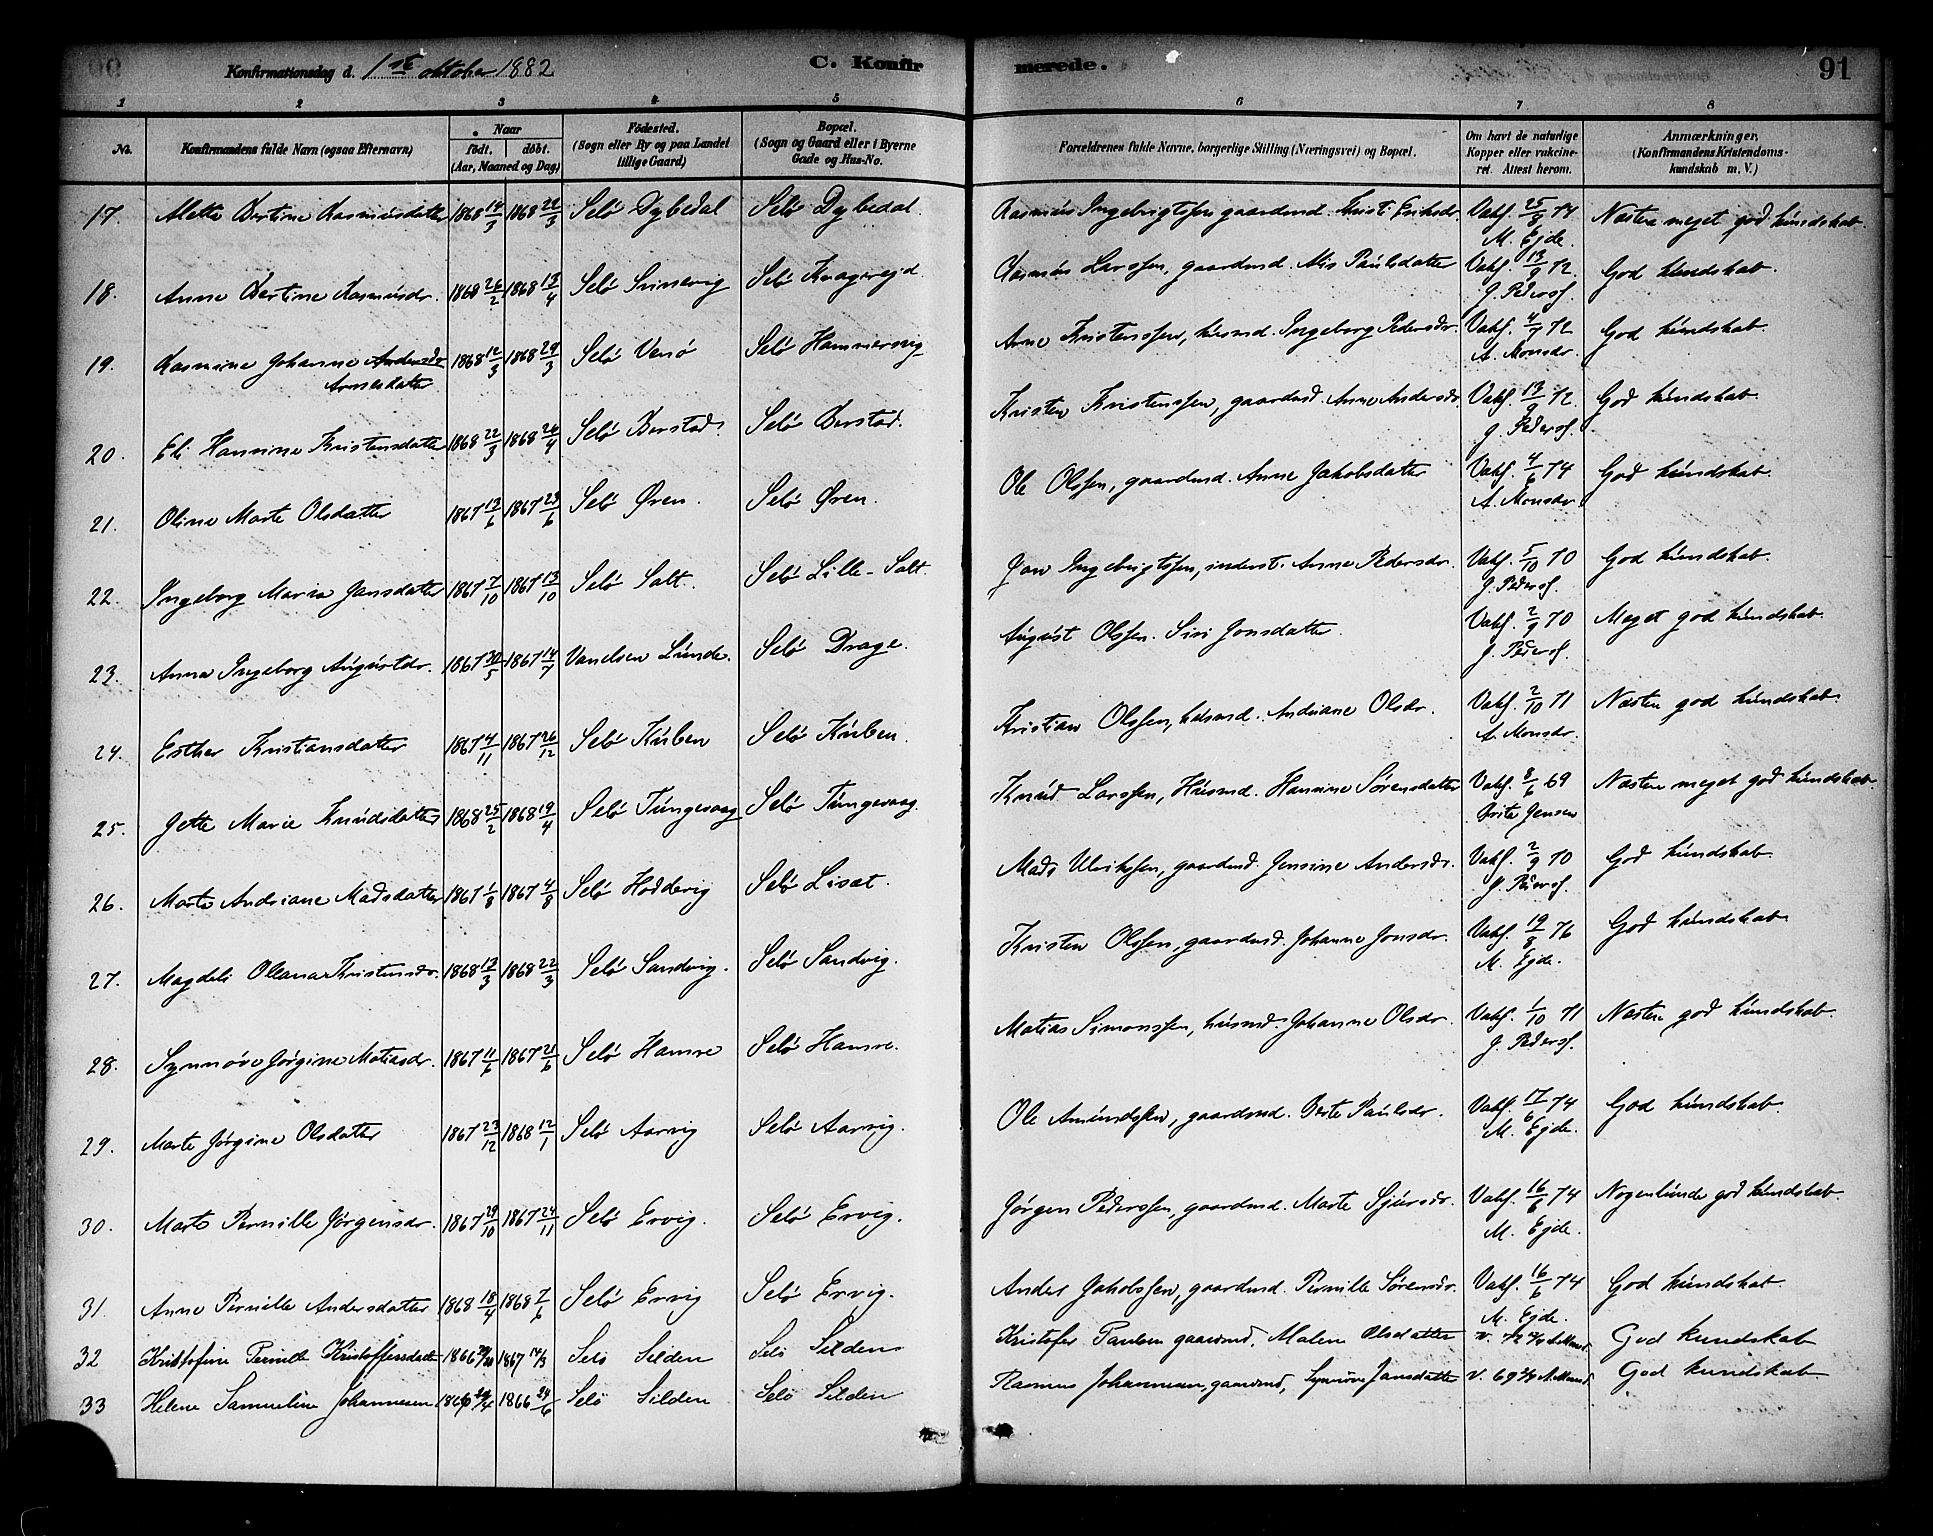 Konfirmationsdag d. 1ste oktober 1882 C. Konfirmerede. 91
1 2 3 4 5 6 7 8
No. Konfirmandens fulde Navn (ogsaa Efternavn) Naar födt. döbt. (Aar, Maaned og Dag) Födested. (Sogn eller By og paa Landet tillige Gaard) Bopæl. (Sogn og Gaard eller i Byerne Gade og Hus-No. Forældrenes fulde Navne, borgerlige Stilling (Næringsvei) og Bopæl. Om havt de naturlige Kopper eller vakcineret. Attest herom. Anmærkninger, (Konfirmandens Kristendomskundskab m. V.)
17. Alette Bertine Rasmusdatter 1868 14/3 1868 22/3 Selø Dybedal Selø Dybedal. Rasmus Ingebrigtssen gaardmd. Kristi Eriksdr. Vakс. 25/8 74 M. Ejde. Næsten meget god kundskab.
18. Anne Bertine Rasmusdr. 1868 26/2 1868 13/4 Selø Svinevig Selø Kragereid. Rasmus Larssen, gaardmd. Alis Paulsdatter Vakс. 13/9 72. J. Peders. God kundskab.
19. Rasmine Johanne Andersdr Arnesdatter 1868 12/3 1868 29/3 Selø Venø Selø Hammersvig Arne Kristenssen, husmd. Ingeborg Pedersdr. Vakс. 4/9 72 A. Monsdr. God kundskab.
20. Eli Hansine Kristensdatter 1868 22/3 1868 26/4 Selø Berstad. Selø Berstad. Kristen Kristenssen, gaardmd. Anne Andersdr. Vakс. 13/9 72. J. Peders. God kundskab.
21. Oline Marte Olsdatter 1867 13/6 1867 23/6 Selø Øren. Selø Øren. Ole Olssen, gaardmd. Anne Jakobsdatter Vakс. 4/6 74 A. Monsdr. God kundskab.
22. Ingeborg Maria Jonsdatter 1867 7/10 1867 13/10 Selø Salt. Selø Lille-Salt. Jon Ingebrigtssen, inderst. Anne Pedersdr. Vakс. 5/10 70 J. Peders. God kundskab.
23. Anna Ingeborg Augustdr. 1867 30/5 1867 14/7 Vanelven Lunde. Selø Drage. August Olssen. Siri Jonsdatter. Vakс. 2/9 70 J. Peders. Meget god kundskab.
24. Esther Kristiansdatter 1867 4/11 1867 26/12 Selø Kuben Selø Kuben. Kristian Olssen, husmd. Andriane Olsdr. Vakс. 2/10 71 A. Monsdr. Næsten god kundskab.
25. Jette Marie Knudsdatter 1868 25/2 1868 19/4 Selø Tungevaag Selø Tungevaag. Knud Larssen, Husmd. Hansine Sørensdatter Vakс. 8/6 69 Brite Jensen Næsten meget god kundskab.
26. Marte Andriane Madsdatter 1867 1/8 1867 4/8 Selø Hoddevig Selø Liset. Mads Ulrikssen, gaardmd. Jensine Andersdr. Vakс. 2/9 70 J. Peders. God kundskab.
27. Magdeli Oleana Kristensdr. 1868 13/3 1868 22/3 Selø Sandvig. Selø Sandvig. Kristen Olssen, gaardmd. Johanne Jonsdr. Vakс. 19/8 76 M. Ejde. God kundskab.
28. Synnøve Jørgine Matiasdr. 1867 11/6 1867 21/6 Selø Hamre Selø Hamre. Matias Simonssen, husmd. Johanne Olsdr. Vakс. 1/10 71 J. Peders. Næsten god kundskab.
29. Marte Jørgine Olsdatter 1867 23/12 1868 12/1 Selø Aarvig Selø Aarvig. Ole Amundssen, gaardmd. Berte Paulsdr. Vakс. 17/6 74 M. Ejde. God kundskab.
30. Marte Pernille Jørgensdr. 1867 29/10 1867 24/11 Selø Ervig. Selø Ervig. Jørgen Pederssen, gaardmd. Marte Sjursdr. Vakс. 16/6 74 M. Ejde. Nogenlunde god kundskab.
31. Anne Pernille Andersdatter 1868 18/4 1868 7/6 Selø Ervig Selø Ervig. Anders Jakobssen, gaardmd. Pernille Sørensdr. Vakс. 16/6 74 M. Ejde. God kundskab.
32 Kristofine Pernille Kristoffersdatter 1866 1867 17/3 Selø Silden Selø Silden Kristofer Paulsen gaardmd. Malene Olsdatter v. 72 God kundskab
33 Helene Samueline Johannesen 1866 1866 24/6 Selø Silden Selø Silden Rasmus Johannesen, gaardmd, Synnøve Jansdatter v. 69 God kundskab